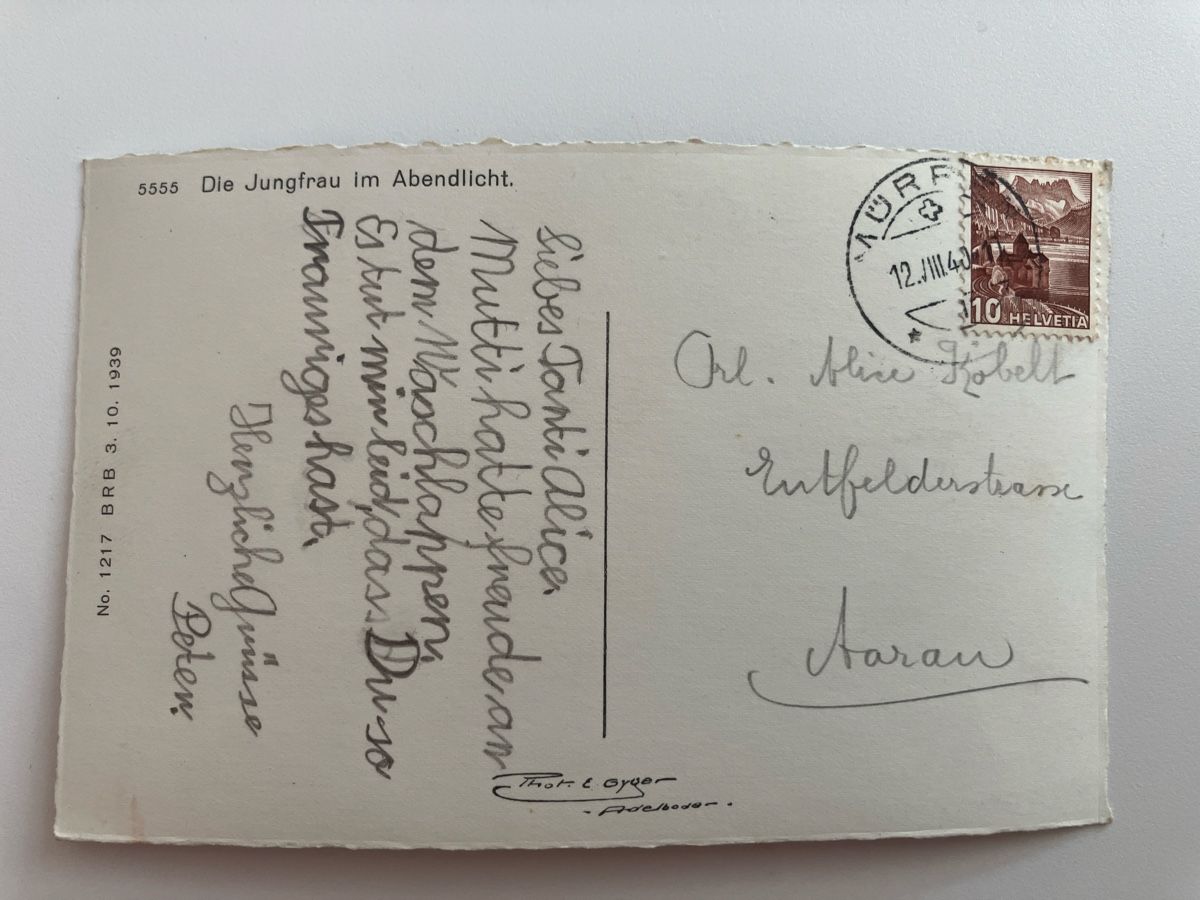 5555 Die Jungfrau im Abendlicht.
Liebes Tanti Alice.
Mutti hatte freude an
dem Waschlappen.
Es tut mir leid, dass Du so
Trauriges hast.
Herzliche Grüsse
Peter.
No. 1217 BRB 3. 10. 1939
MÜRR
12.VIII.40
10 HELVETIA
Frl. Alice Köbelt
Entfelderstrasse
Aarau
Phot. E. Gyger
- Adelboden -